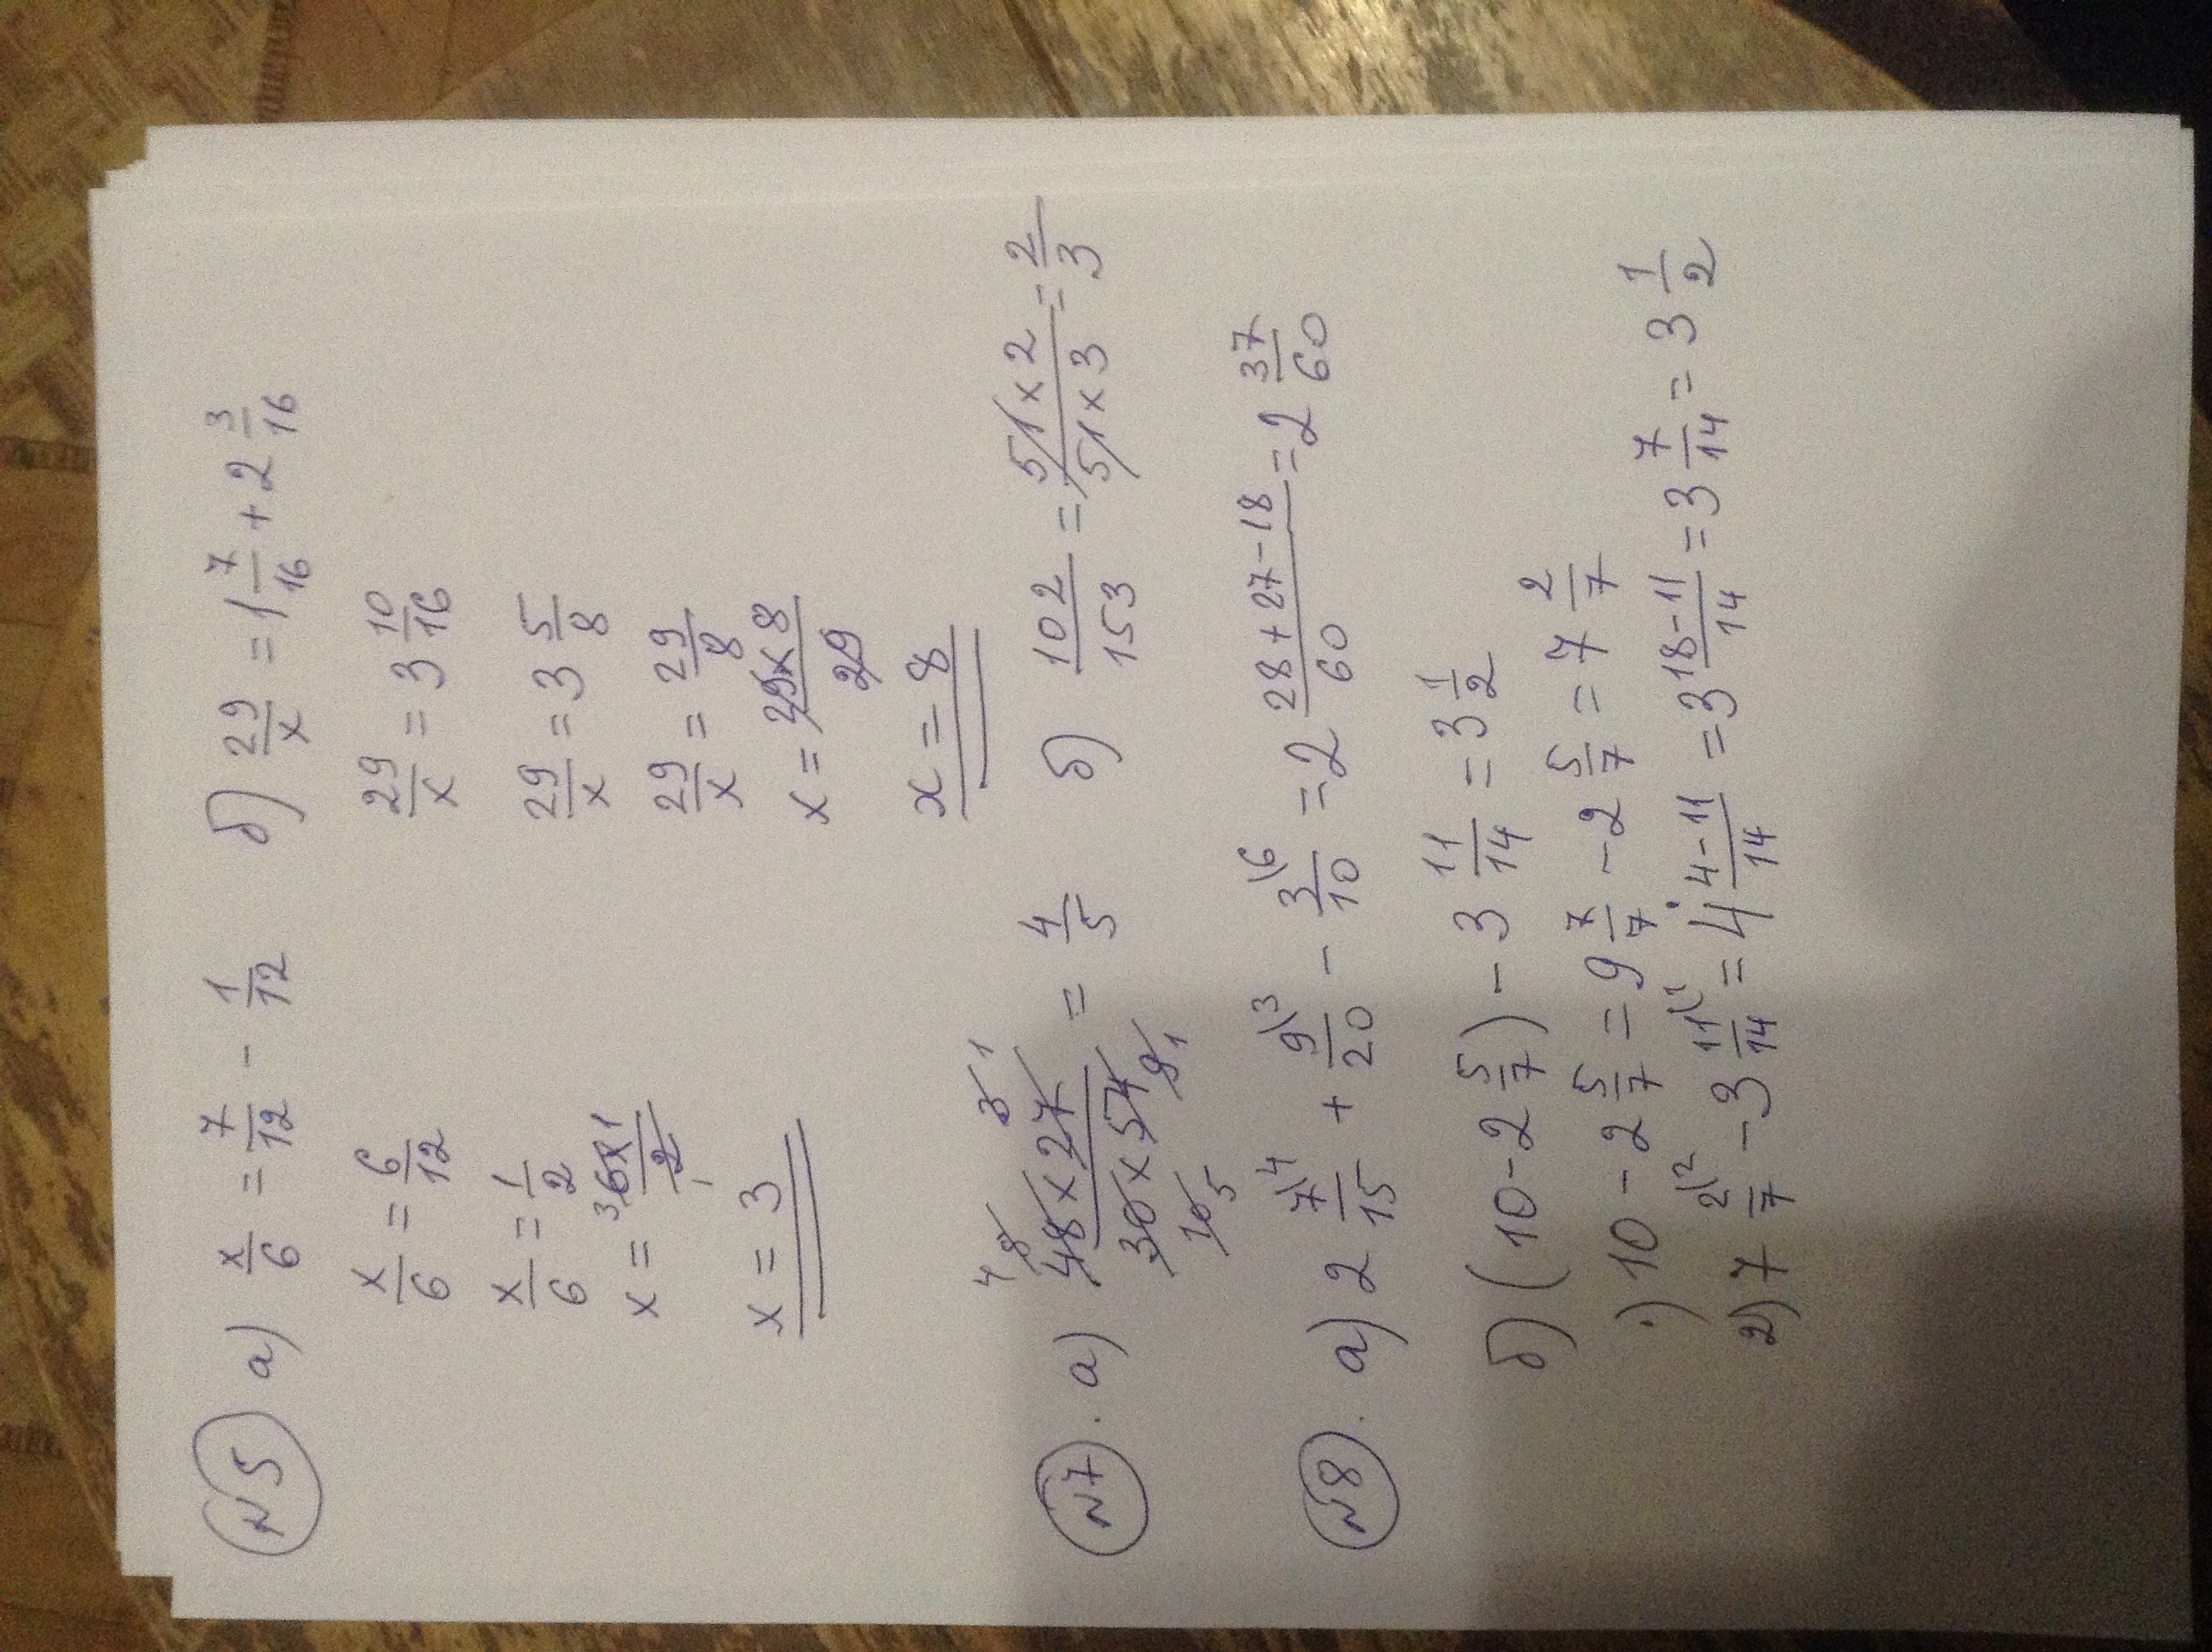 №5 а) x/6 = 7/12 - 1/12 б) 29/x = 1 7/16 + 2 3/16
x/6 = 6/12 29/x = 3 10/16
x/6 = 1/2 29/x = 3 5/8
29/x = 29/8
x = 6×1/2 x = 29×8/29
x = 3 x = 8
№7. а) 48×27/30×54 = 4/5 б) 102/153 = 51×2/51×3 = 2/3
№8. а) 2 7\4/15 + 9\3/20 - 3\6/10 = 2 28+27-18/60 = 2 37/60
б) (10 - 2 5/7) - 3 11/14 = 3 1/2
1) 10 - 2 5/7 = 9 7/7 - 2 5/7 = 7 2/7
2) 7 2\2/7 - 3 11\1/14 = 4 4-11/14 = 3 18-11/14 = 3 7/14 = 3 1/2